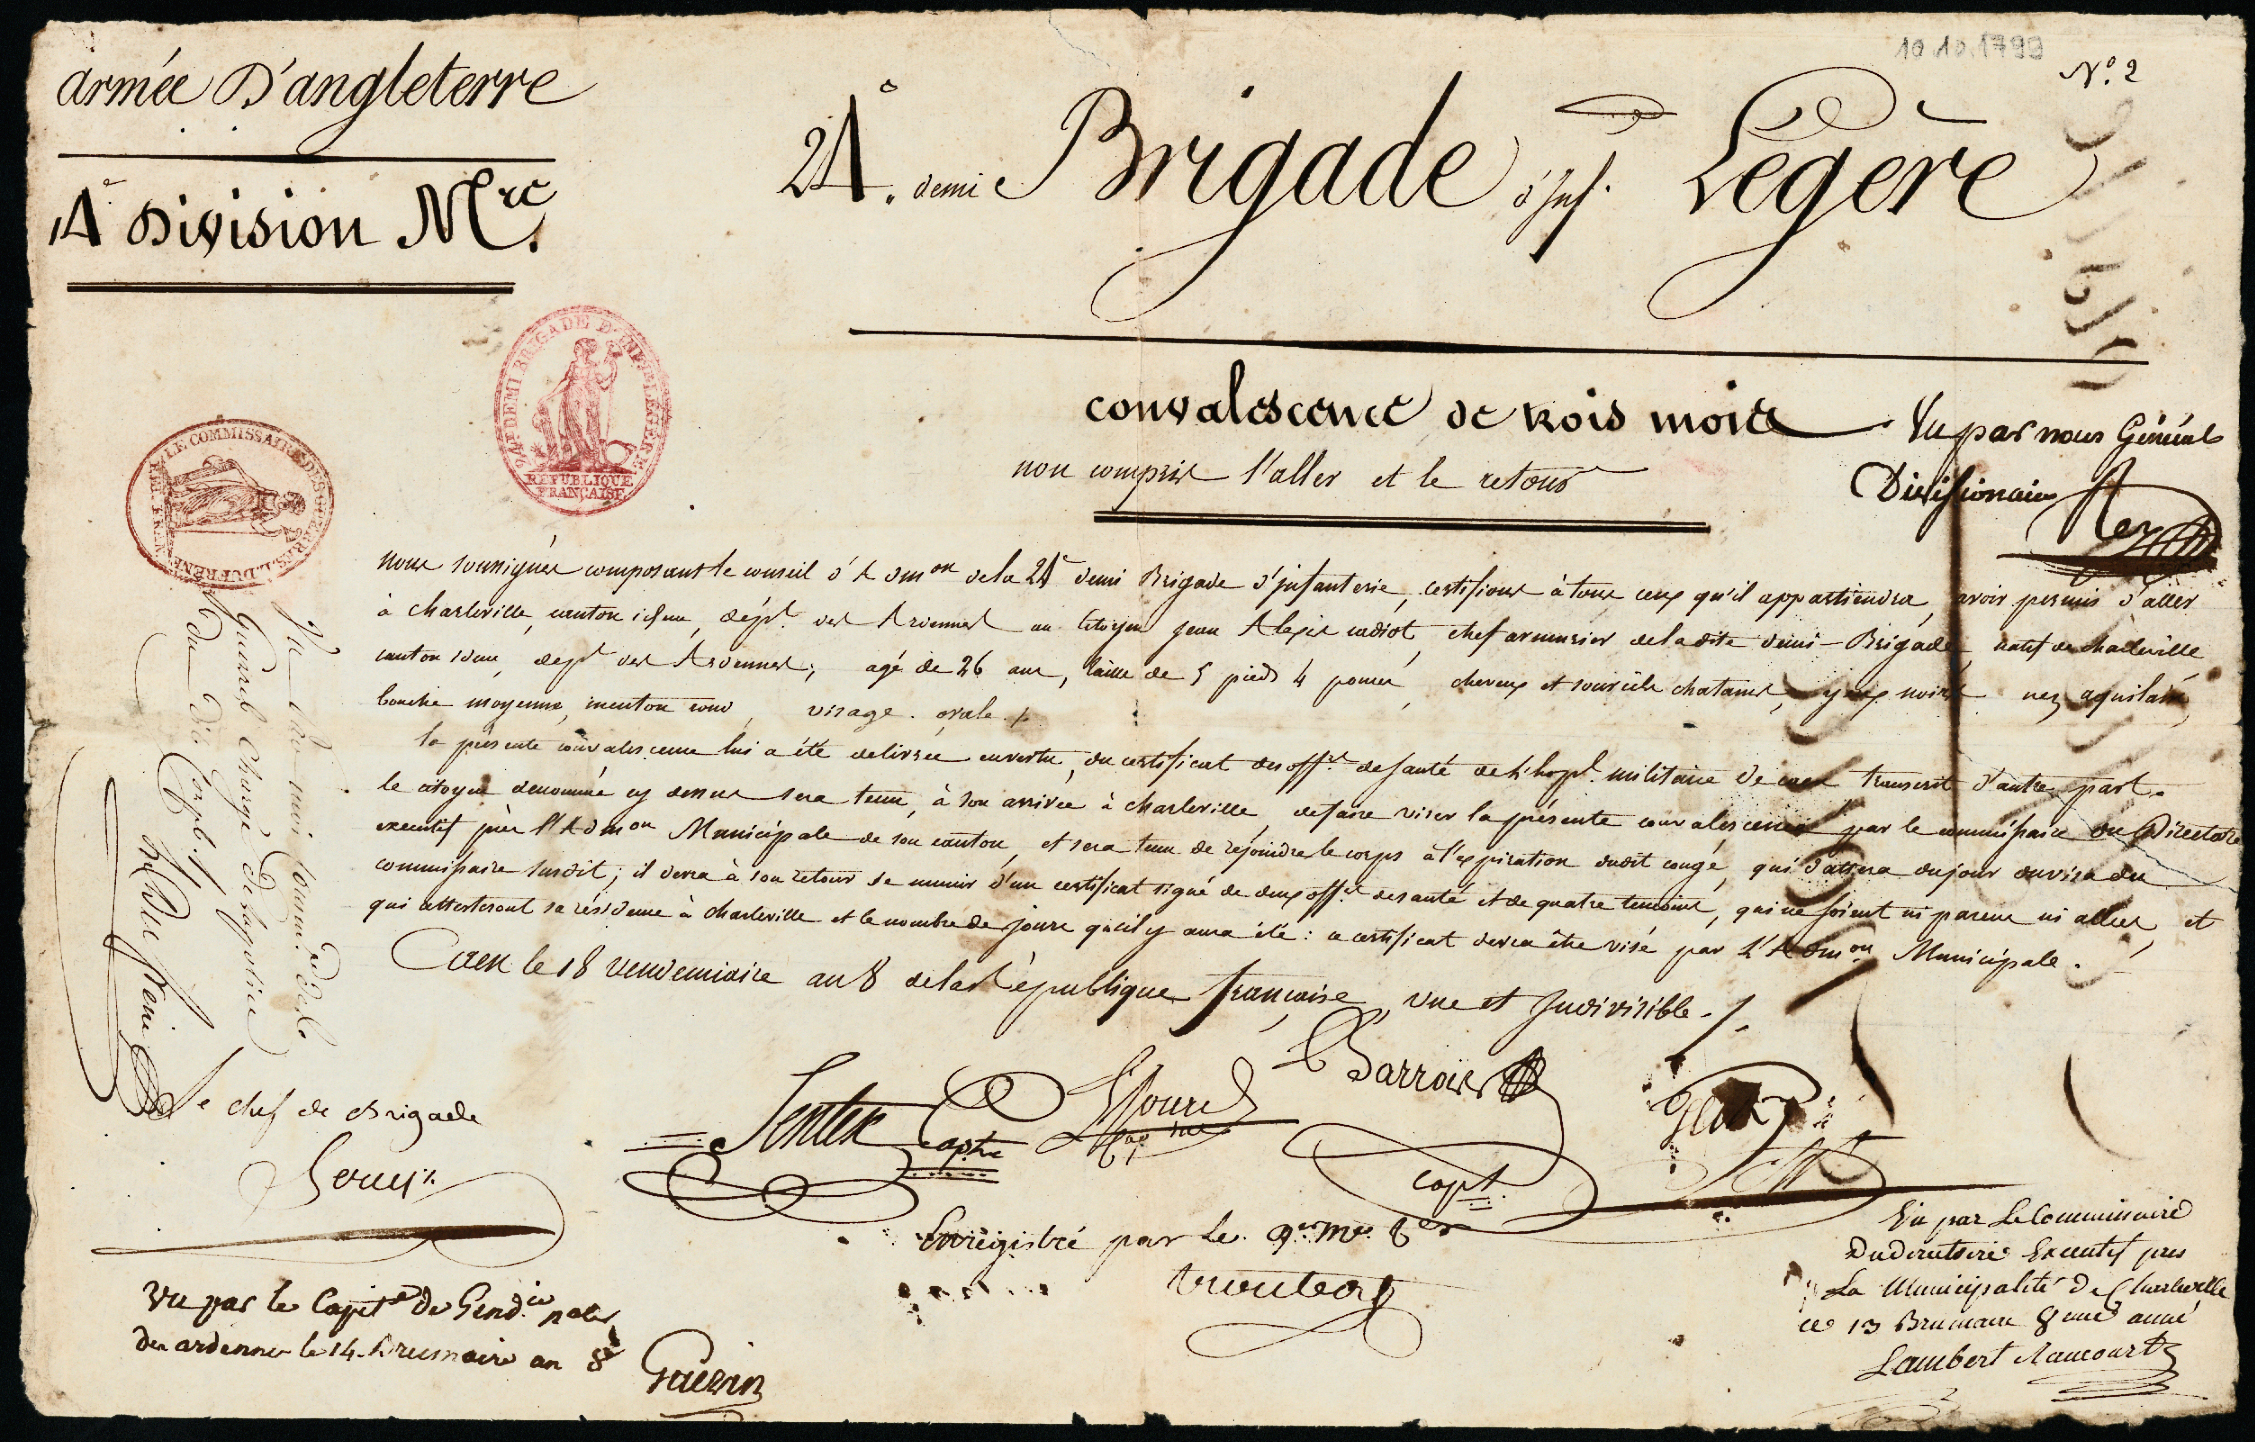 armée D'angleterre
14e Division Mre.
10.10.1799
No. 2
24e. demi Brigade d'Inf. Légère
24e DEMI BRIGADE D'INF. LEGERE
REPUBLIQUE
FRANÇAISE
LE COMMISSAIRE DES GUERRES. L. DUFRÊNE
convalescence de trois mois
non compris l'aller et le retour
Vu par nous Général
Divisionaire
nous soussignés composant le conseil d'Admon de la 24e demi Brigade d'infanterie, certifions à tous ceux qu'il appartiendra, avoir permis d'aller
à Charleville, canton idem, dépt. des Ardennes au Citoyen jean Alexis cadiot, chef armurier de la dite demi-Brigade, natif de charleville
canton idem, dept des Ardennes; agé de 26 ans, taille de 5 pieds 4 pouces, cheveux et sourcils chatains, yeux noirs nez aquilain,
bouche moyenne, menton rond, visage ovale ./.
la présente convalescence lui a été delivrée en vertu, du certificat des offrs de santé de l'hopl. militaire de caen transcrit d'autre part.
le citoyen denommé cy dessus sera tenu, à son arrivée à charleville, de faire viser la présente convalescence par le commissaire du Directoire
executif près l'Admon Municipale de son canton, et sera tenu de rejoindre le corps à l'expiration dudit congé, qui dattera du jour du visa du
commissaire susdit; il devra à son retour se munir d'un certificat signé de deux offrs de santé et de quatre temoins, qui ne soient ni parens ni alliés, et
qui attesteront sa résidence à charleville et le nombre de jours qu'il y aura été: ce certificat devra être visé par l'Admon Municipale.
Caen le 18 vendemiaire an 8 de la République française, une et Indivisible ./.
Vu par moi Commre des
Guerres Chargé de la police
du dit Corps
L. Dufrêne
Le chef de Brigade
Capne
Barrois
capt
Enregistré par le qer. mre
Vu par le Capite de Gendie natle
des ardennes le 14 Brumaire an 8e
Guérin
Vu par Le Commissaire
Du Directoire Executif pres
La Municipalité De Charleville
ce 13 Brumaire 8eme année
Lambert Raucourt